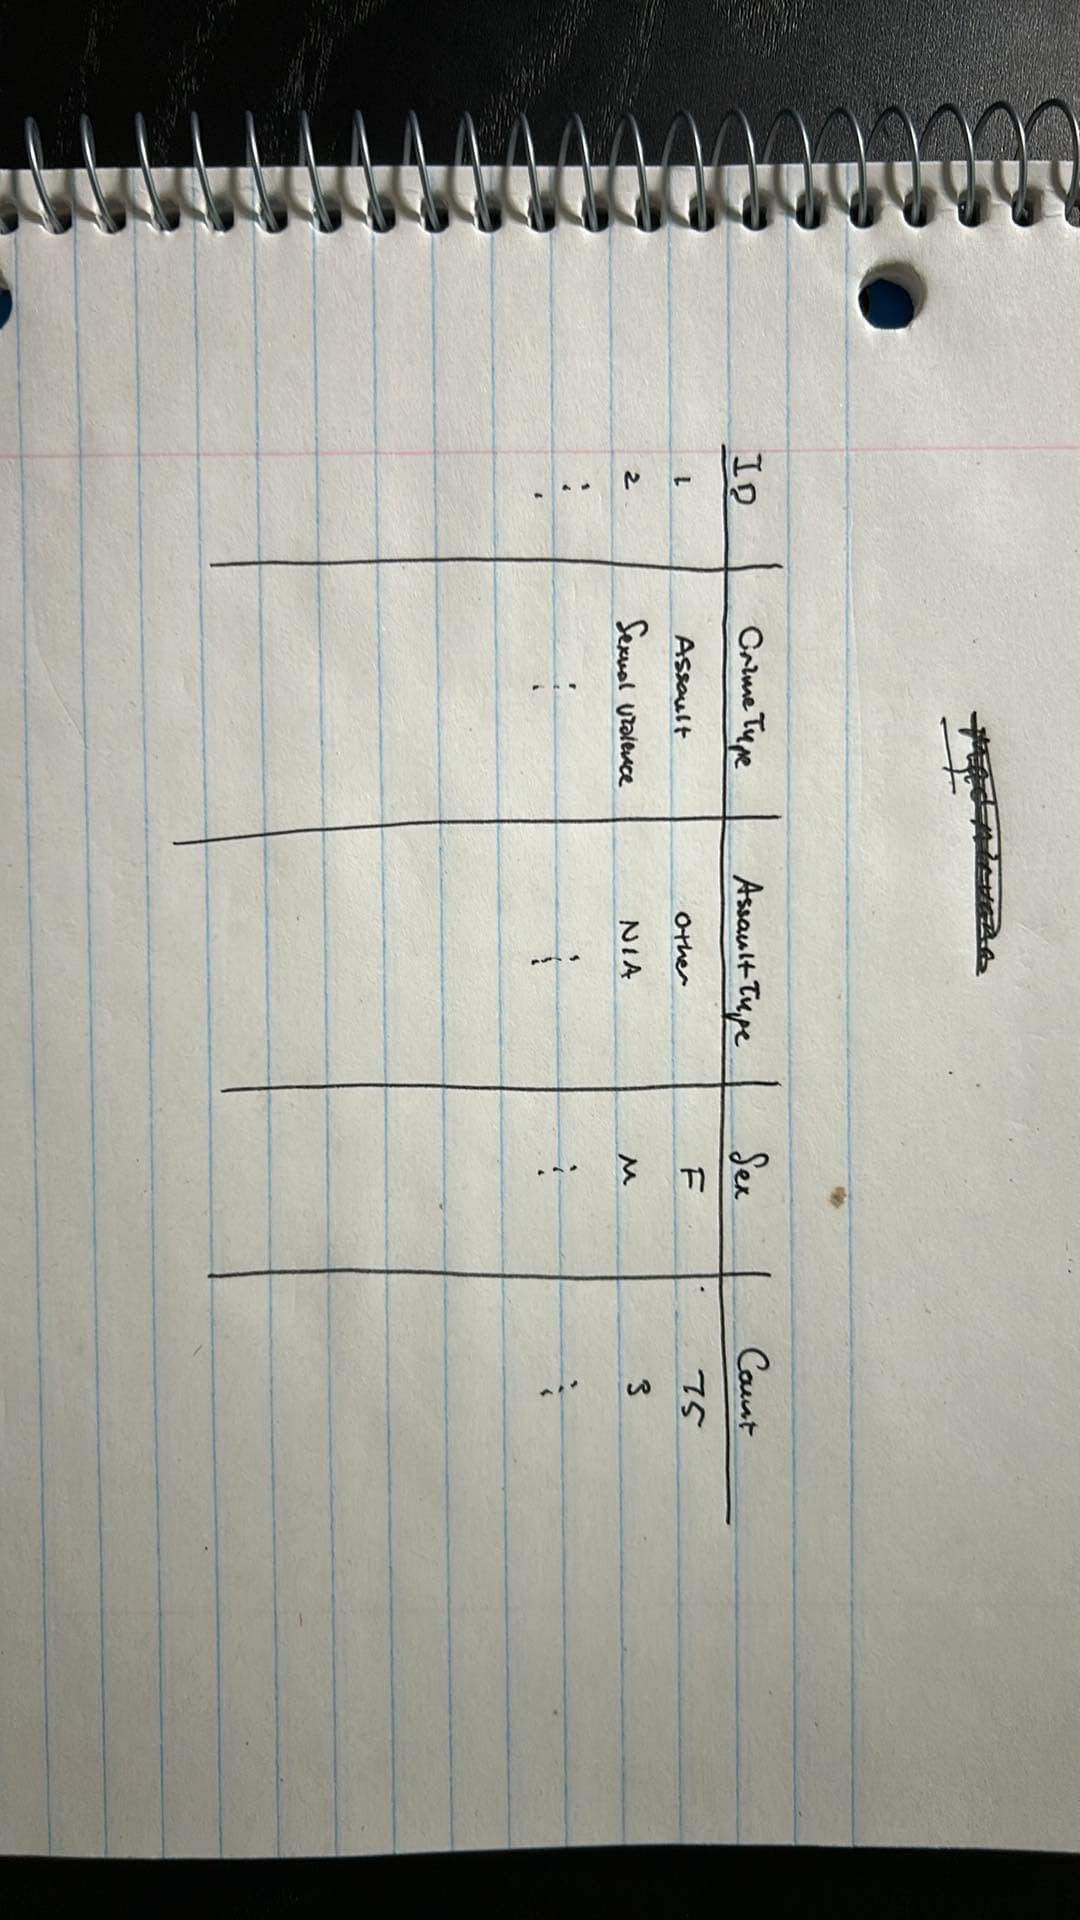 ID Crime Type Assault Type Sex Count
1 Assault Other F 75
2 Sexual Violence N/A M 3